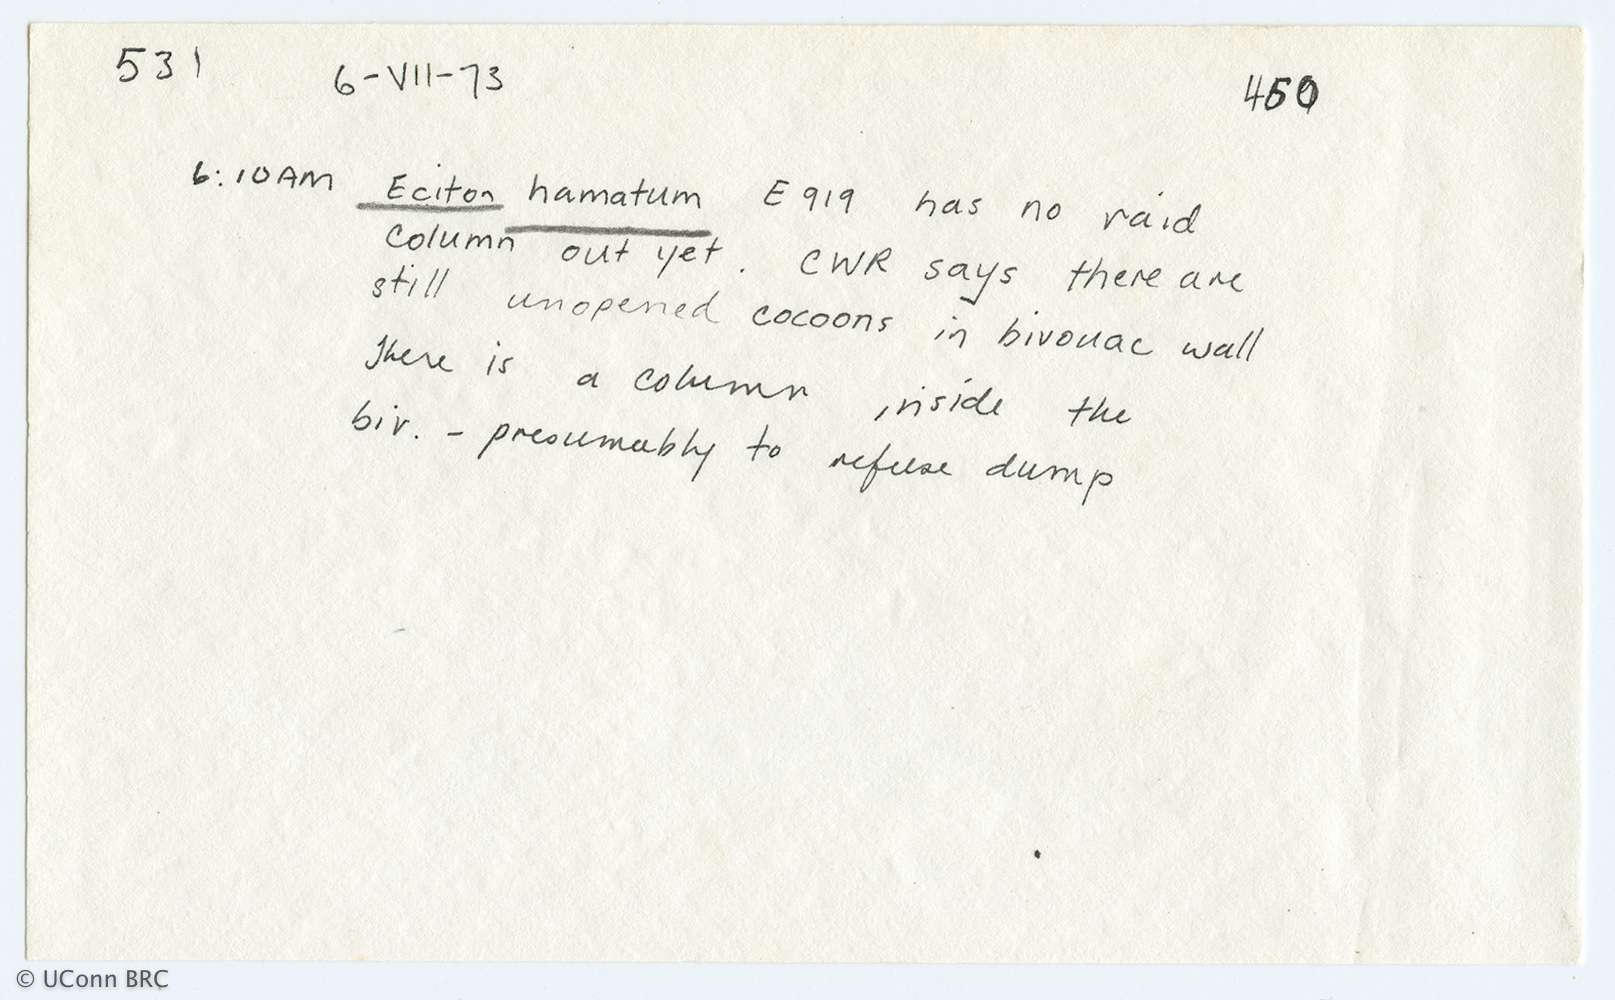 531 6-VII-73 450
6:10AM Eciton hamatum E919 has no raid
column out yet. CWR says there are
still unopened cocoons in bivouac wall
There is a column inside the
biv. - presumably to refuse dump
© UConn BRC